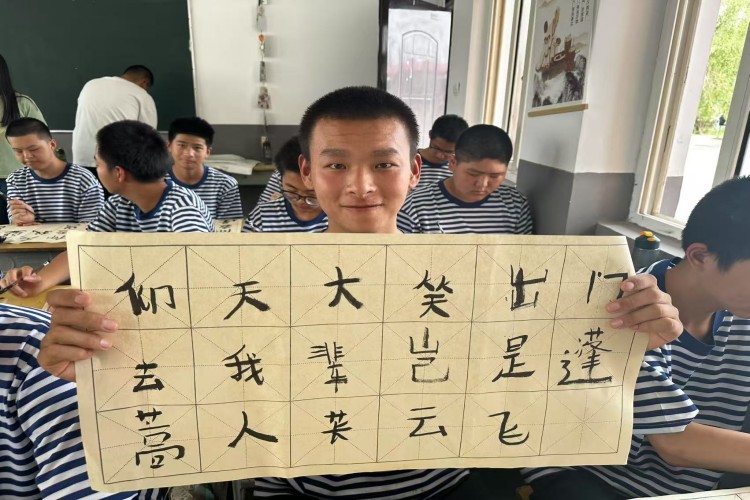 仰天大笑出门
去我辈岂是蓬
蒿人英云飞